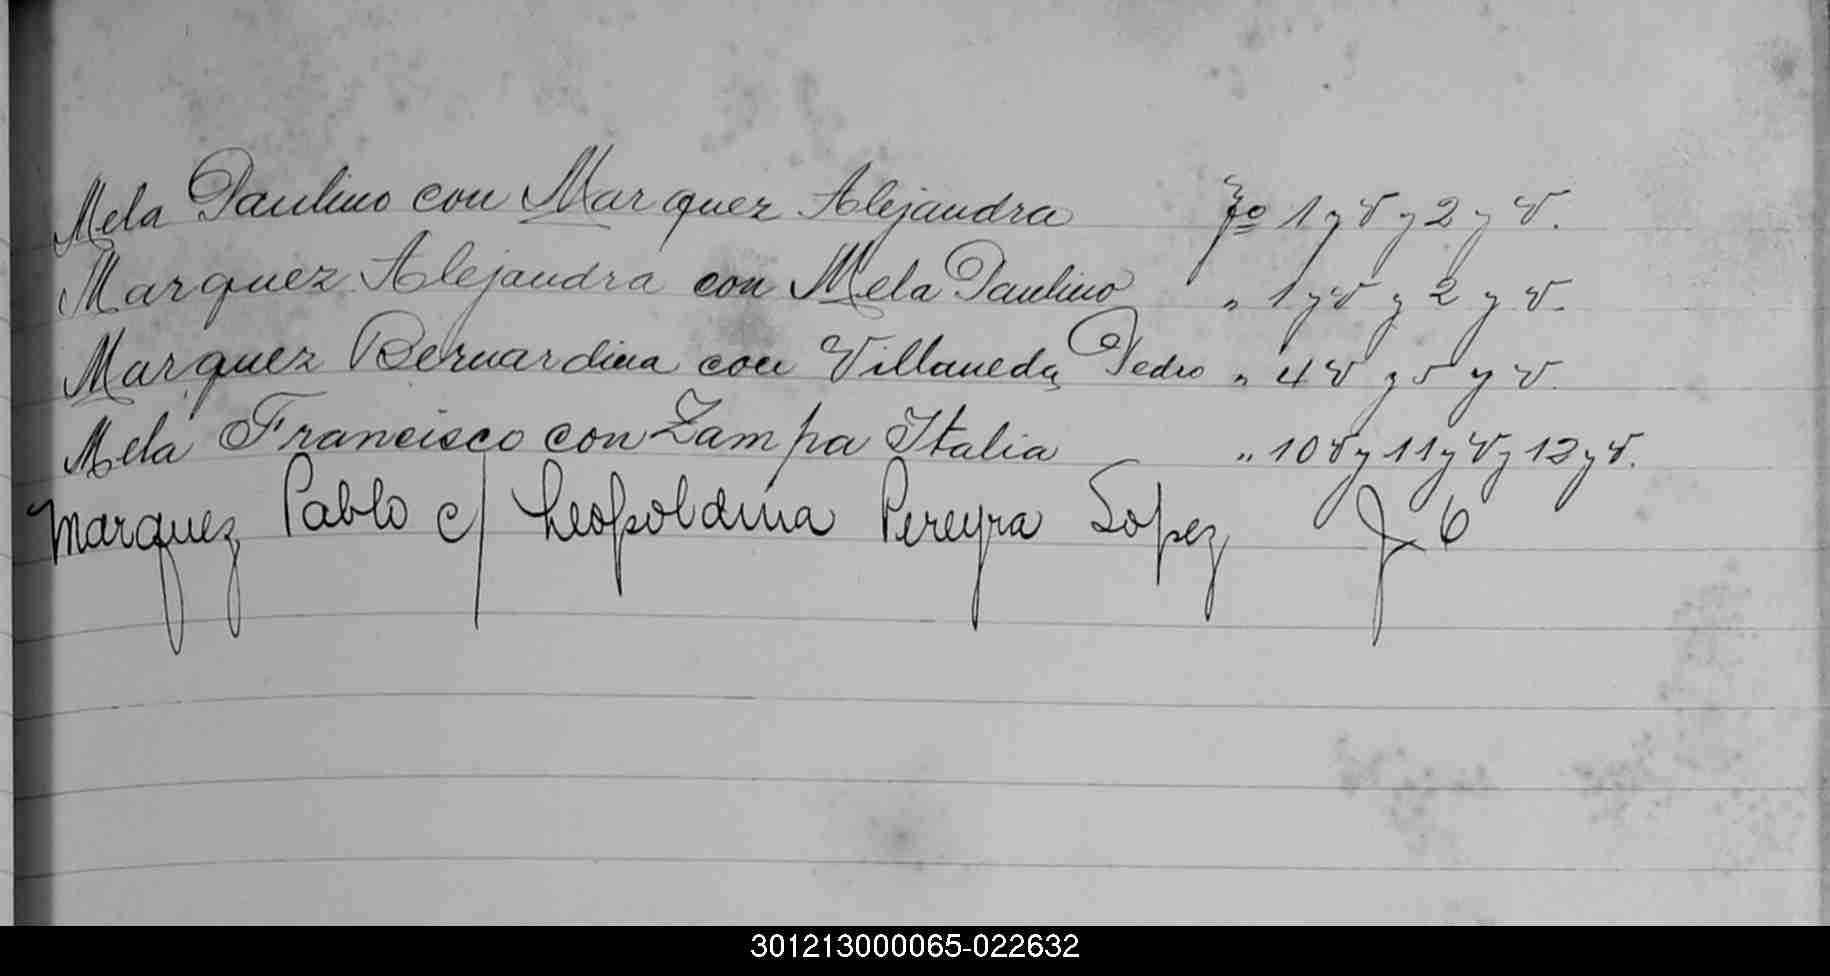 Mela Paulino con Marquez Alejandra fo 1 y V y 2 y V.
Marquez Alejandra con Mela Paulino " 1 y V y 2 y V.
Marquez Bernardina con Villaneda Pedro " 4 V y 5 y V.
Mela Francisco con Zampa Italia " 10 V y 11 y V y 12 y V.
Marquez Pablo c/ Leopoldina Pereyra Lopez f 6
301213000065-022632